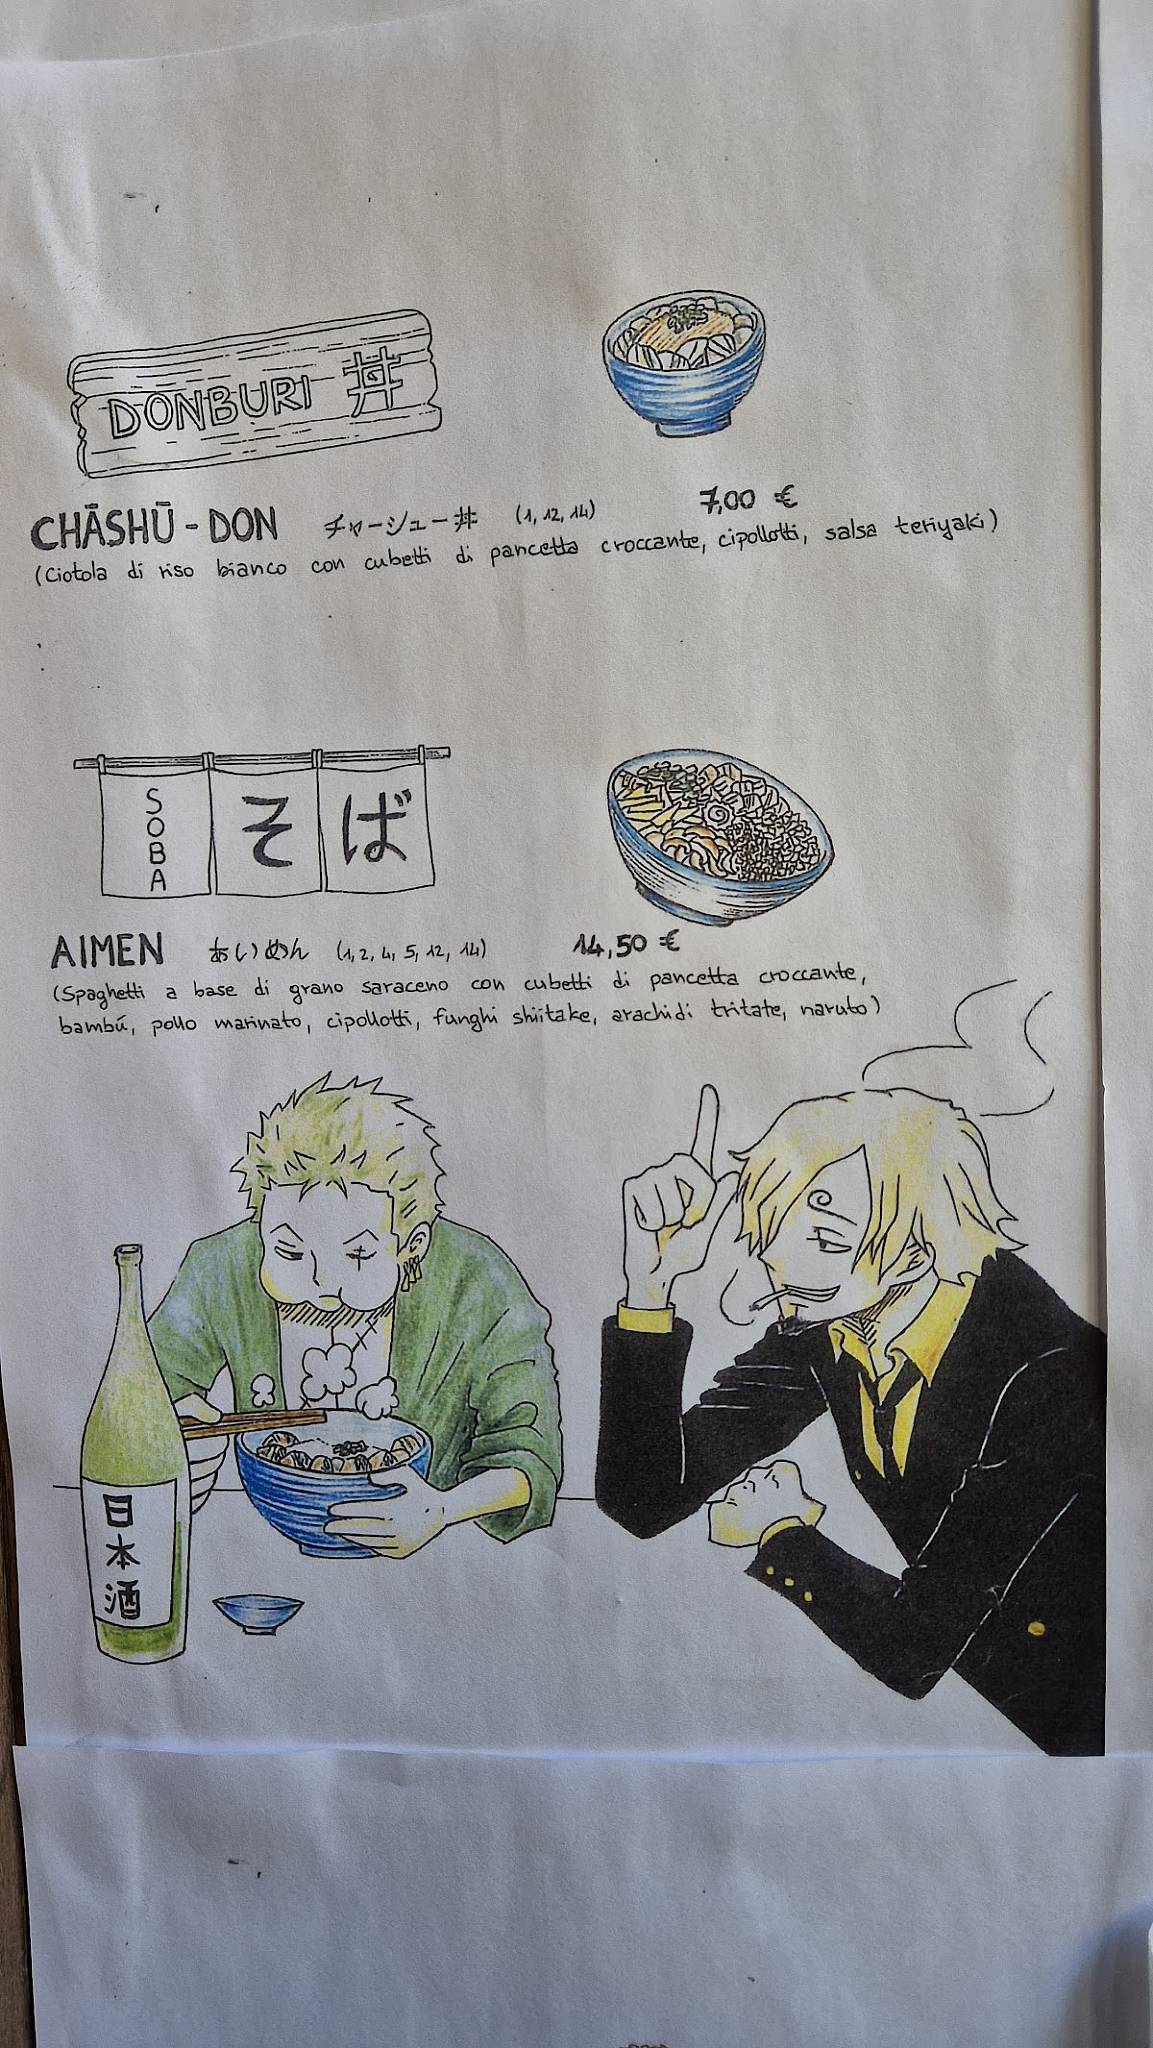 DONBURI 丼
CHĀSHŪ - DON チャーシュー丼 (1, 12, 14) 7,00 €
(Ciotola di riso bianco con cubetti di pancetta croccante, cipollotti, salsa teriyaki)
SOBA そば
AIMEN あいめん (1, 2, 4, 5, 12, 14) 14,50 €
(Spaghetti a base di grano saraceno con cubetti di pancetta croccante,
bambú, pollo marinato, cipollotti, funghi shiitake, arachidi tritate, naruto)
日本酒